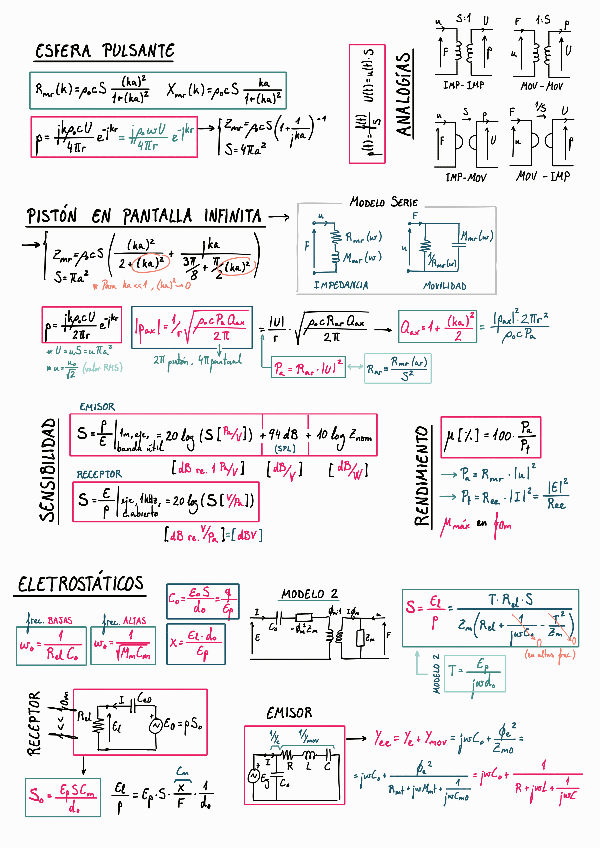 ESFERA PULSANTE
Rmr(k) = ρ₀cS (ka)²/(1+(ka)²)   Xmr(k) = ρ₀cS ka/(1+(ka)²)
p = jkρ₀cU/4πr e^-jkr = jρ₀ωU/4πr e^-jkr → { Zmr = ρ₀cS (1 + 1/jka)^-1
S = 4πa²
p(t) = f(t)/S   U(t) = u(t)·S
ANALOGÍAS
S:1
u U
F p
IMP-IMP
1:S
F p
u U
MOV-MOV
S
u p
F U
IMP-MOV
1/S
F U
u p
MOV-IMP
PISTÓN EN PANTALLA INFINITA →
→ { Zmr = ρ₀cS ( (ka)²/(2+(ka)²) + jka/(3π/8 + π/2 (ka)²) )
S = πa²
* Para ka<<1, (ka)²→0
MODELO SERIE
u
F
Rmr(ω)
Mmr(ω)
IMPEDANCIA
F
u
1/Rmr(ω)
Mmr(ω)
MOVILIDAD
p = jkρ₀cU/2πr e^-jkr
* U = uS = uπa²
* u = u₀/√2 (valor RMS)
|pax| = 1/r √(ρ₀cPaQax/2π) = |U|/r · √(ρ₀cRarQax/2π) → Qax = 1 + (ka)²/2 = |pax|²2πr²/ρ₀cPa
2π pistón, 4π puntual
Pa = Rar·|U|² ↔ Rar = Rmr(ω)/S²
SENSIBILIDAD
EMISOR
S = p/E | 1m, eje, banda útil = 20 log (S [Pa/V]) + 94 dB + 10 log Znom
(SPL)
[dB re. 1 Pa/V] [dB/V] [dB/W]
RECEPTOR
S = E/p | eje, 1kHz, c.abierto = 20 log (S [V/Pa])
[dB re. V/Pa] = [dBV]
RENDIMIENTO
μ[%] = 100 · Pa/Pt
→ Pa = Rmr·|u|²
→ Pt = Ree·|I|² = |E|²/Ree
μmáx en f0m
ELETROSTÁTICOS
frec. BAJAS
ω₀ = 1/(Rel C₀)
frec. ALTAS
ω₀ = 1/√(MmCm)
C₀ = ε₀S/d₀ = q/Ep
X = El·d₀/Ep
MODELO 2
I C₀
E
Zm
F
S = El/p = T·Rel·S / (Zm(Rel + 1/jωC₀ - T²/Zm))
(en altas frec.)
MODELO 2
T = Ep/jωd₀
RECEPTOR
f << f0m
Rel El I Ce0
E₀ = pS₀
S₀ = EpSCm/d₀
El/p = Ep·S· x/F · 1/d₀
Cm
EMISOR
1/Ye 1/Ymov
I R L C
Eg C₀
→ Yee = Ye + Ymov = jωC₀ + ϕe²/Zm0 =
= jωC₀ + ϕe²/(Rmt + jωMmt + 1/jωCm0) = jωC₀ + 1/(R + jωL + 1/jωC)